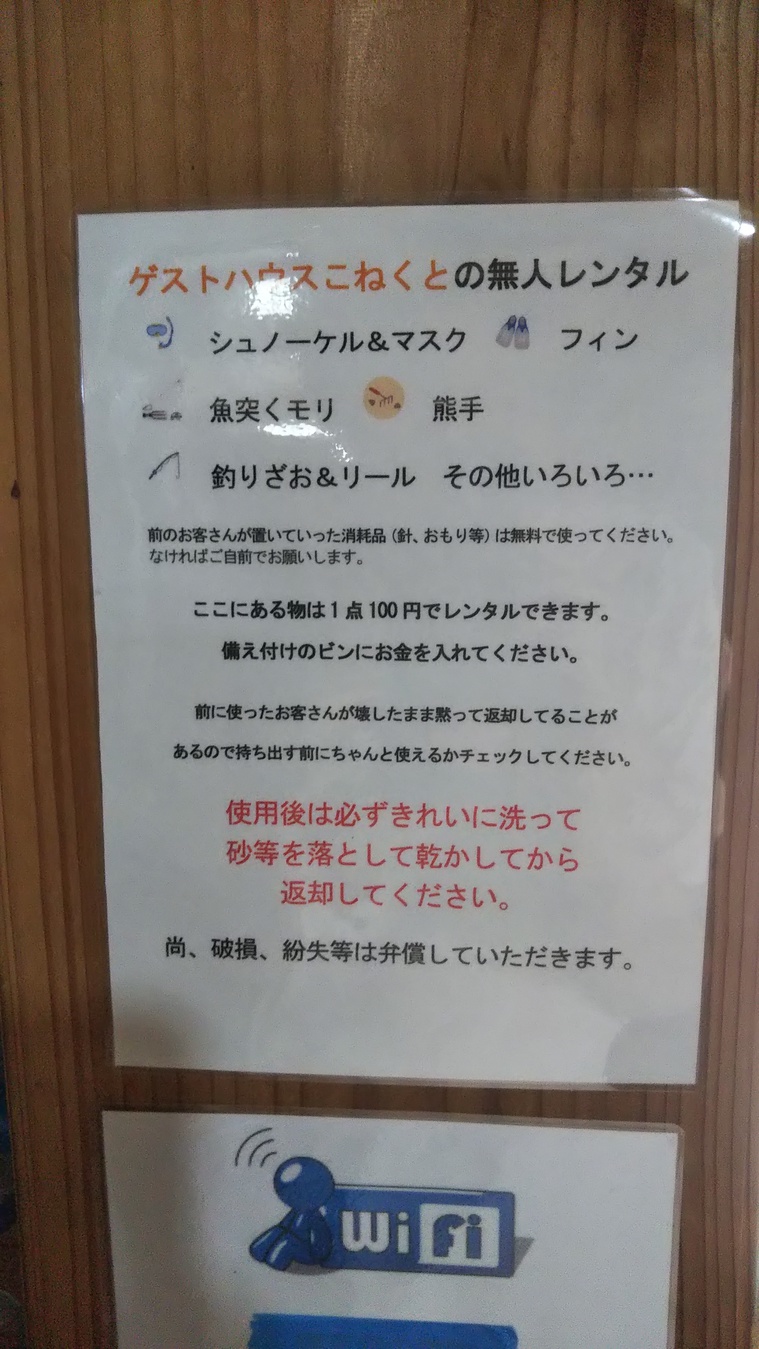 ゲストハウスこねくとの無人レンタル
シュノーケル＆マスク フィン
魚突くモリ 熊手
釣りざお＆リール その他いろいろ…
前のお客さんが置いていった消耗品（針、おもり等）は無料で使ってください。
なければご自前でお願いします。
ここにある物は1点100円でレンタルできます。
備え付けのビンにお金を入れてください。
前に使ったお客さんが壊したまま黙って返却してることが
あるので持ち出す前にちゃんと使えるかチェックしてください。
使用後は必ずきれいに洗って
砂等を落として乾かしてから
返却してください。
尚、破損、紛失等は弁償していただきます。
WiFi